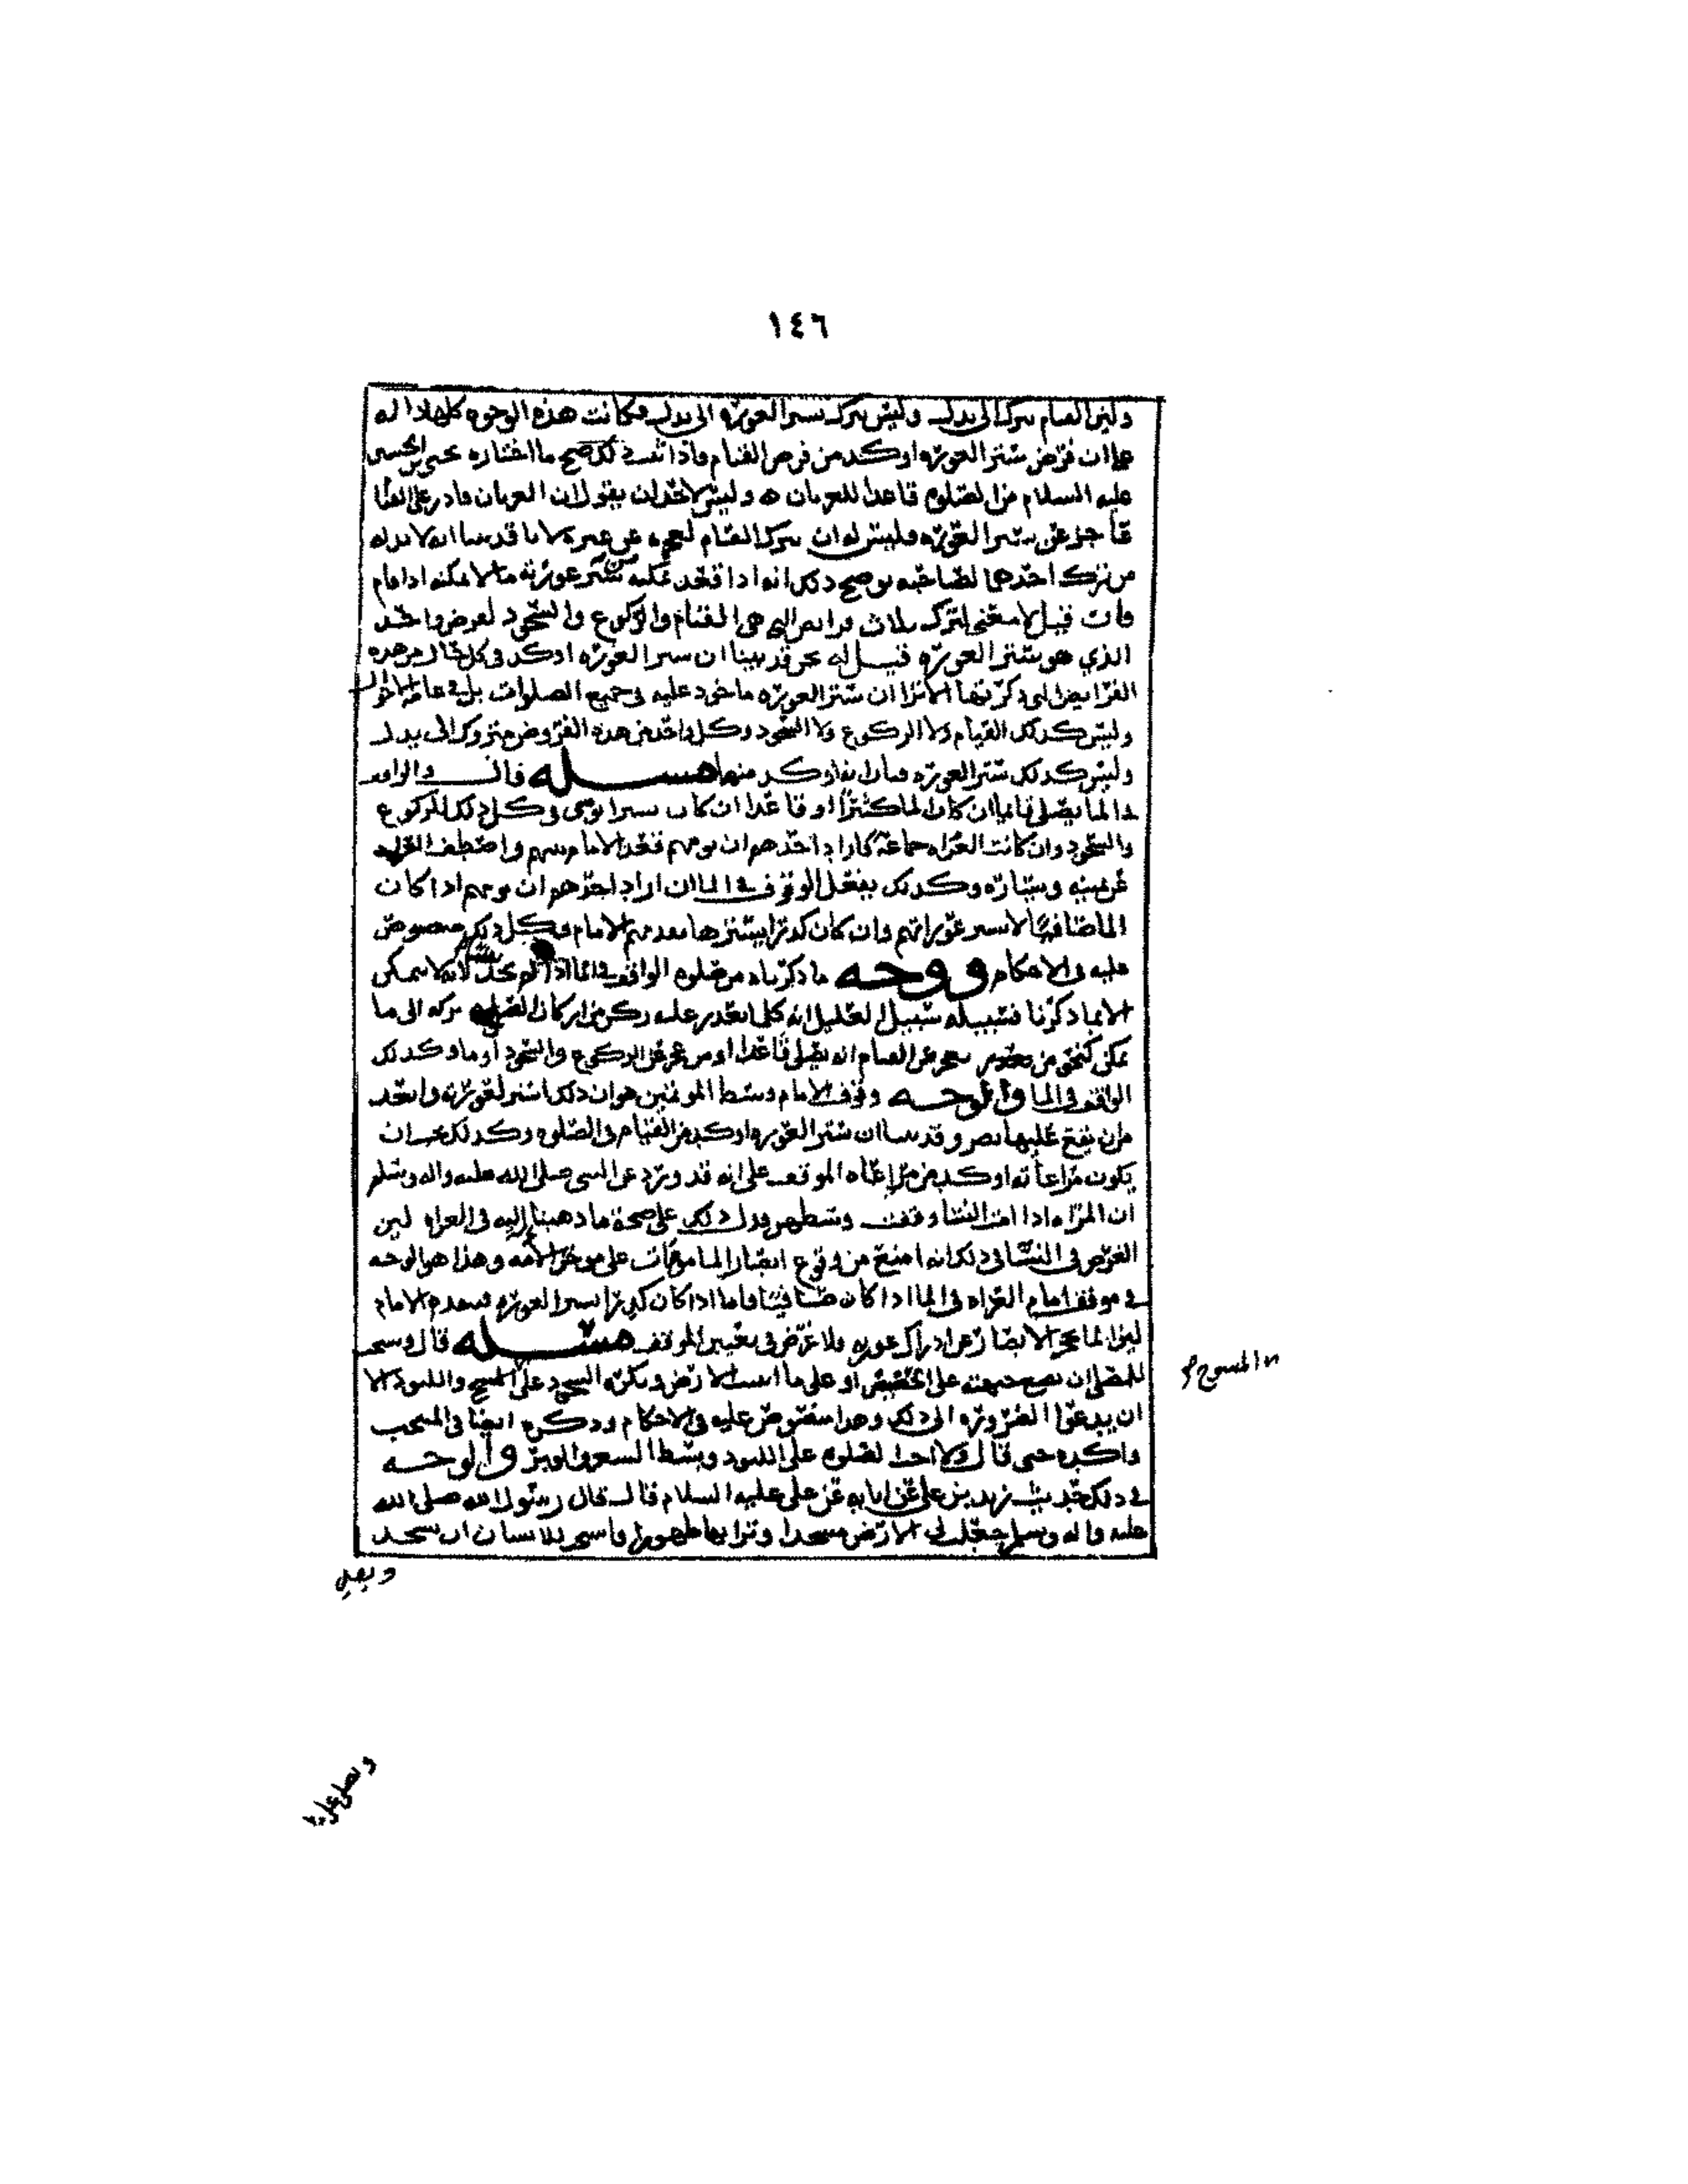 ١٤٦
وليس القيام يترك الى بدل وليس يترك ستر العورة الى بدل فكانت هذه الوجوه كلها دالة
على ان فرض ستر العورة اوكد من فرض القيام فاذا ثبت ذلك صح ما اختاره يحيى بن الحسين
عليه السلام من الصلوة قاعدا للعريان ه وليس لاحد ان يقول ان العريان قادر على القيام
عاجز عن ستر العورة فليس له ان يترك القيام لعجزه عن غيره لانا قد بينا انه لا بد له
من ترك احدهما لصاحبه يوضح ذلك انه اذا قعد يمكنه من ستر عورته ما لا يمكنه اذا قام
فان قيل لا معنى لترك ثلاث فرائض التي هي القيام والركوع والسجود لفرض واحد
الذي هو ستر العورة قيل له نحن قد بينا ان ستر العورة اوكد في كل حال من هذه
الفرايض التي ذكرتها الا ترا ان ستر العورة ماخوذ عليه في جميع الصلوات بل في عامة الاحوال
وليس كذلك القيام ولا الركوع ولا السجود وكل واحد من هذه الفروض متروك الى بدل
وليس كذلك ستر العورة فبان انه اوكد منها مسئلة قال والواقف
في الما يصلي قايما ان كان الما كثيرا او قاعدا ان كان يسيرا يومي في كل ذلك للركوع
والسجود وان كانت العراة جماعة فاراد احدهم ان يومهم قعد الامام بينهم واصطف القوم
عن يمينه ويساره وكذلك يفعل الوقوف في الما ان اراد احدهم ان يومهم اذا كان
الما صافيا لا يستر عوراتهم وان كان كدرا يسترها تقدمهم الامام وكل ذلك منصوص
عليه في الاحكام ووجه ما ذكرناه من صلوة الواقف في الما اذا لم يجد لانه لا يتمكن
الا بما ذكرنا فسبيله سبيل العليل انه كلما تعذر عليه ركن من اركان الصلوة تركه الى ما
يمكن كنحو من يعجز عن القيام انه يصلي قاعدا او من عجز عن الركوع والسجود اوما وكذلك
الواقف في الما والوجه وقوف الامام وسط المؤتمين هو ان ذلك استر لعورته وابعد
من ان يقع عليها بصر وقد بينا ان ستر العورة اوكد من القيام في الصلوة وكذلك يجب ان
يكون مراعاته اوكد من مراعاة الموقف على انه قد ورد عن النبي صلى الله عليه واله وسلم
ان المراة اذا امت النسا وقفت وسطهن ودل ذلك على صحة ما ذهبنا اليه في العراة لان
الغرض في النسا في ذلك انه امنع من وقوع ابصار المامومات على موخر الامه وهذا هو الوجه
في موقف امام العراة في الما اذا كان صافيا فاما اذا كان كدرا يستر العورة فيتقدم الامام
لان الما يحجز الابصار عن ادراك عورته ولا غرض في تغيير الموقف مسئلة قال ويستحب
للمصلي ان يضع جبهته على الحضيض او على ما انبتت الارض ويكره السجود على المسح واللبود الا
ان يدعو الضرورة الى ذلك وهذا منصوص عليه في الاحكام وذكره ايضا في المنتخب
واكده حتى قال ولا احب الصلوة على اللبود وبسط الشعر والوبر والوجه
في ذلك حديث زيد بن علي عن ابايه عن علي عليه السلام قال قال رسول الله صلى الله
عليه واله وسلم جعلت لي الارض مسجدا وترابها طهورا فاستحب للانسان ان يسجد
ويصلي